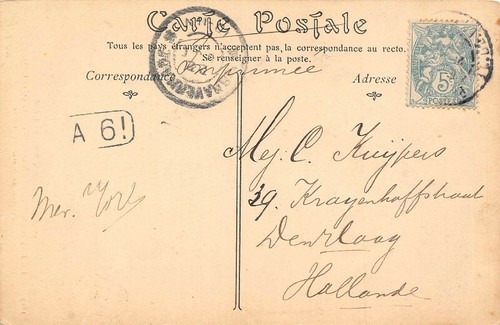 Carte Postale
Tous les pays étrangers n'acceptent pas la correspondance au recto.
Se renseigner à la poste.
Correspondance
Adresse
5c
POSTES
A 6!
Mej. C. Kuijpers
39. Krayenhoffstraat
Den Haag
Hollande